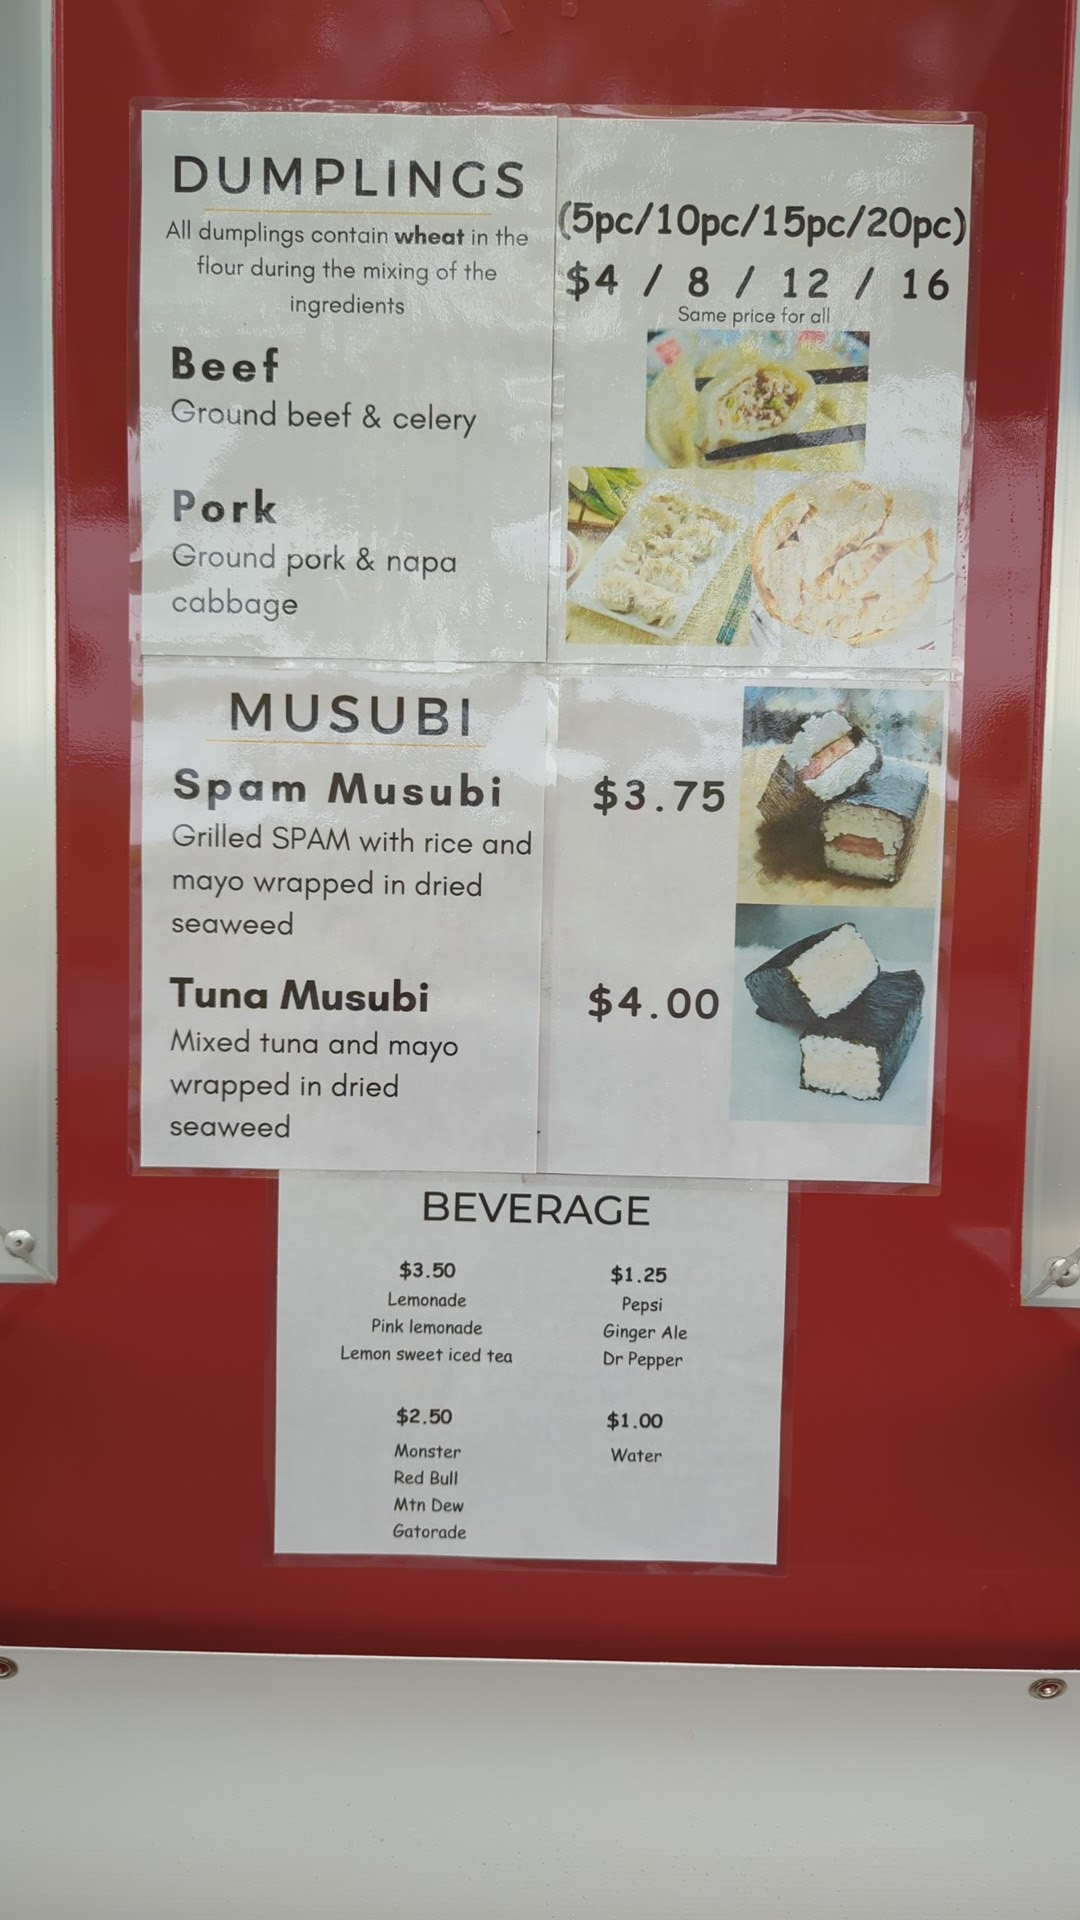 DUMPLINGS
All dumplings contain wheat in the
flour during the mixing of the
ingredients
(5pc/10pc/15pc/20pc)
$4 / 8 / 12 / 16
Same price for all
Beef
Ground beef & celery
Pork
Ground pork & napa
cabbage
MUSUBI
Spam Musubi
$3.75
Grilled SPAM with rice and
mayo wrapped in dried
seaweed
Tuna Musubi
$4.00
Mixed tuna and mayo
wrapped in dried
seaweed
BEVERAGE
$3.50
Lemonade
Pink lemonade
Lemon sweet iced tea
$1.25
Pepsi
Ginger Ale
Dr Pepper
$2.50
Monster
Red Bull
Mtn Dew
Gatorade
$1.00
Water